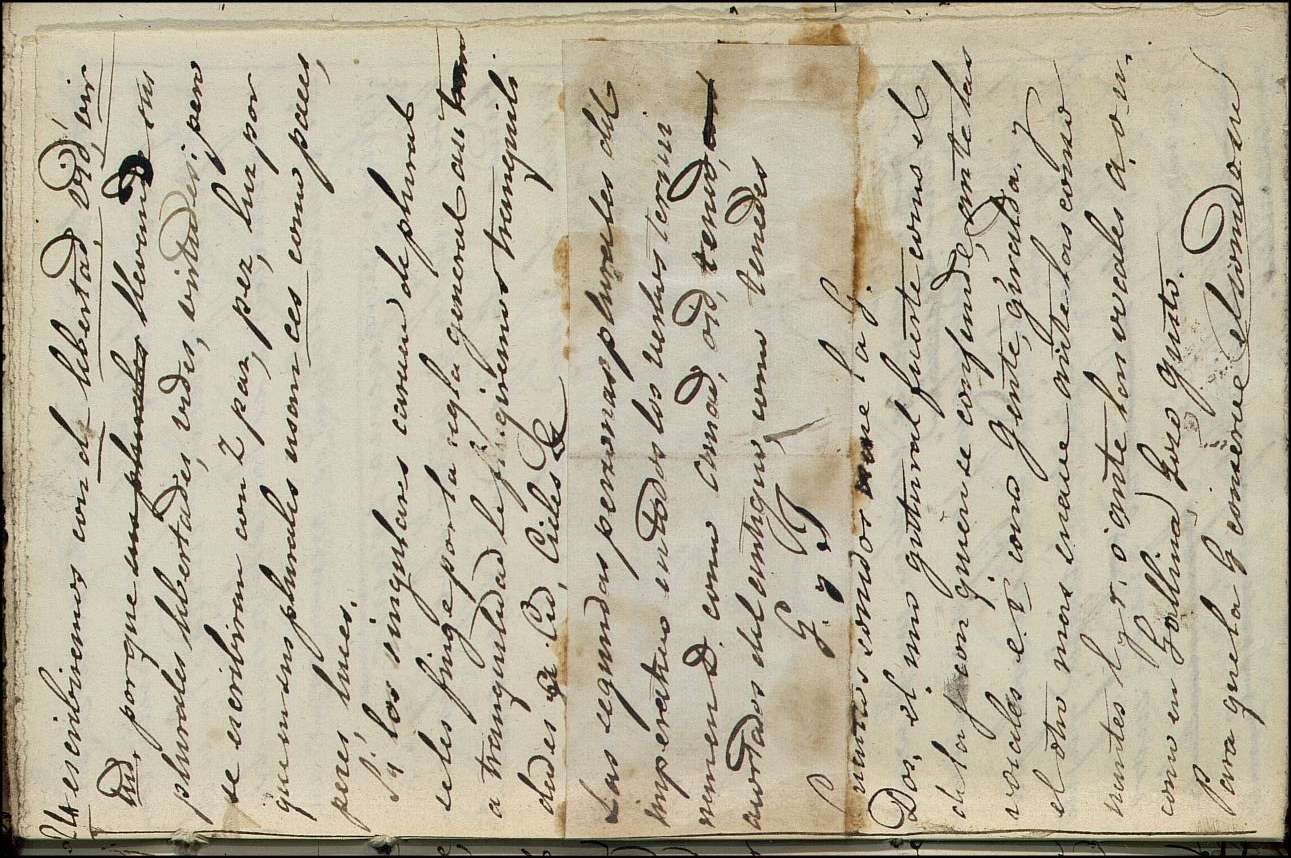 escribiremos con d libertad, vid, vir
tud, porque sus plurales llevando sus
plurales libertades, vides, virtudes: pero
se escribiran con Z paz, pez, luz por
que en sus plurales usan ces como paces,
peces, luces.
Si los singulares carecen de plural
se les finge por la regla general asi
a tranquilidad le fingiremos tranquili
dades
Las segundas personas plurales del
imperativo en todos los verbos termi
nen en D. como amad, oid, tened,
acortados del antiguo como tenedes
G. y J.
Dos, el uno gutural fuerte como el
de la j con quien se confunde, ante las
vocales e. i como gente, girada. Y
el otro mas suave ante las como
nantes l y r, o ante las vocales a, o u,
como en Gallina, Gozo gusto.
Para que la G conserve el sonido su